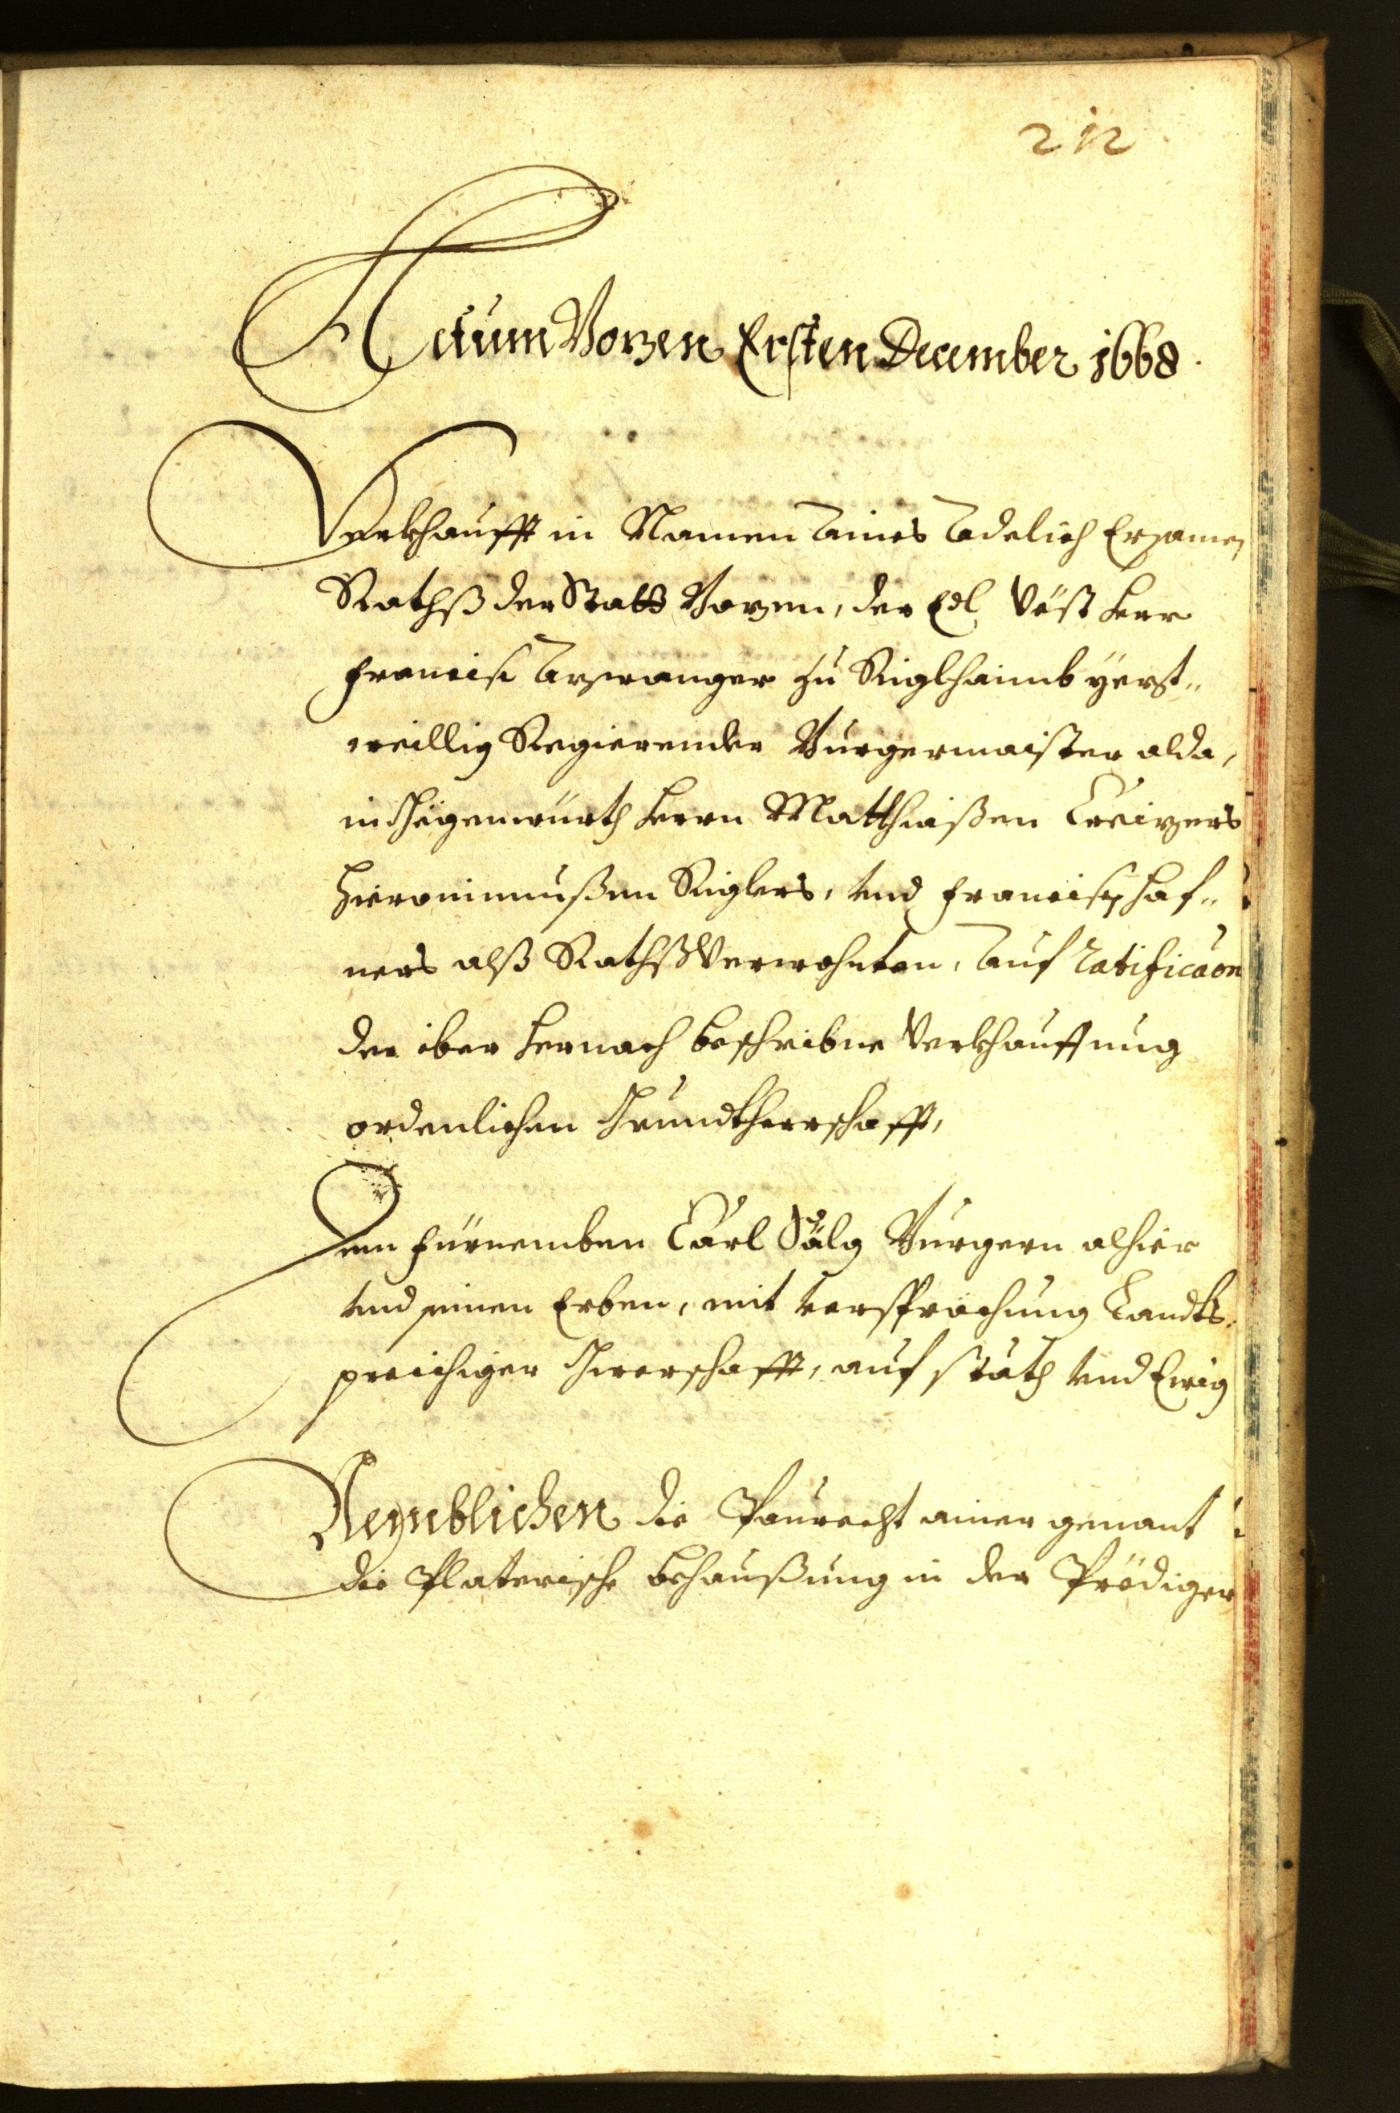 212
Actum Bozen Ersten December 1668.
Verkhaufft in Namen Aines Adelich Ersamen
Rathß der Statt Bozen, der Edl Vöst Herr
Francisc zu Siglhaimb yezt„
weillig Regierender Burgermaister alda,
in Gegenwürth Herrn Matthiaßen
Hieronimußen Riglers, und Francisc Haf„
ners alß Rathßverwohnten, Auf Ratificaon
der iber hernach beschribne Verkhauffung
ordenlichen Grundtherrschafft,
Dem fürnemben Carl Sälg Burgern alhier
und seinen Erben, mit versprechung Landts„
preichiger Gwerschafft, auf stäth und Ewig
Nemblichen die Paurecht ainer genant
die Platerische behaußung in der Prödiger